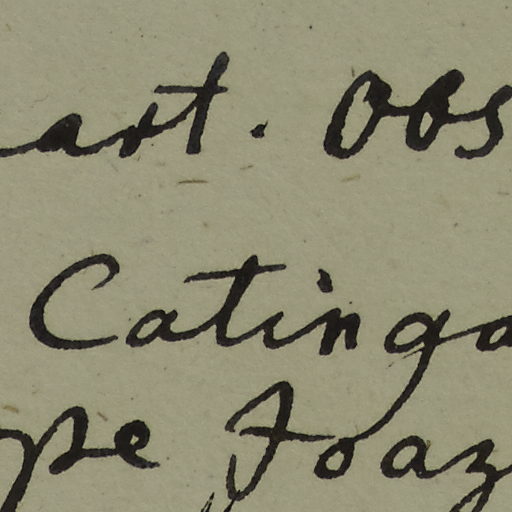 art. Obs
Catinga
pe Joaz